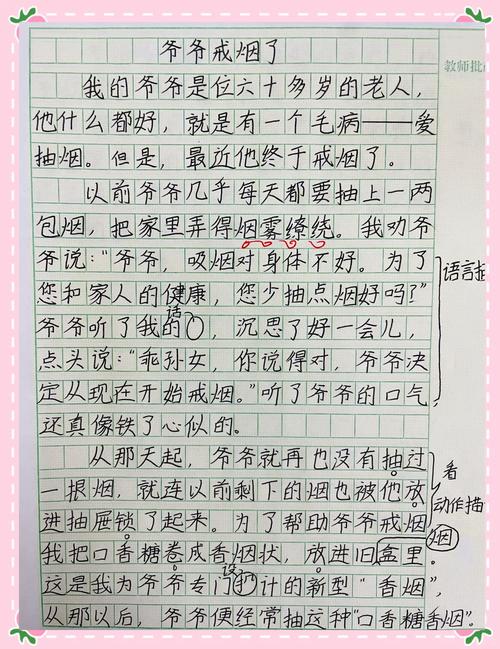 爷爷戒烟了
教师批
我的爷爷是位六十多岁的老人，
他什么都好，就是有一个毛病——爱
抽烟。但是，最近他终于戒烟了。
以前爷爷几乎每天都要抽上一两
包烟，把家里弄得烟雾缭绕。我劝爷
爷说："爷爷，吸烟对身体不好。为了
语言描
您和家人的健康，您少抽点烟好吗？"
话
爷爷听了我的，沉思了好一会儿，
点头说："乖孙女，你说得对，爷爷决
定从现在开始戒烟。"听了爷爷的口气，
还真像铁了心似的。
从那天起，爷爷就再也没有抽过
看
一根烟，就连以前剩下的烟也被他放
动作描
进抽屉锁了起来。为了帮助爷爷戒烟
烟
我把口香糖卷成香烟状，放进旧盒里。
设
这是我为爷爷专门计的新型"香烟"，
从那以后，爷爷便经常抽这种"口香糖香烟"。